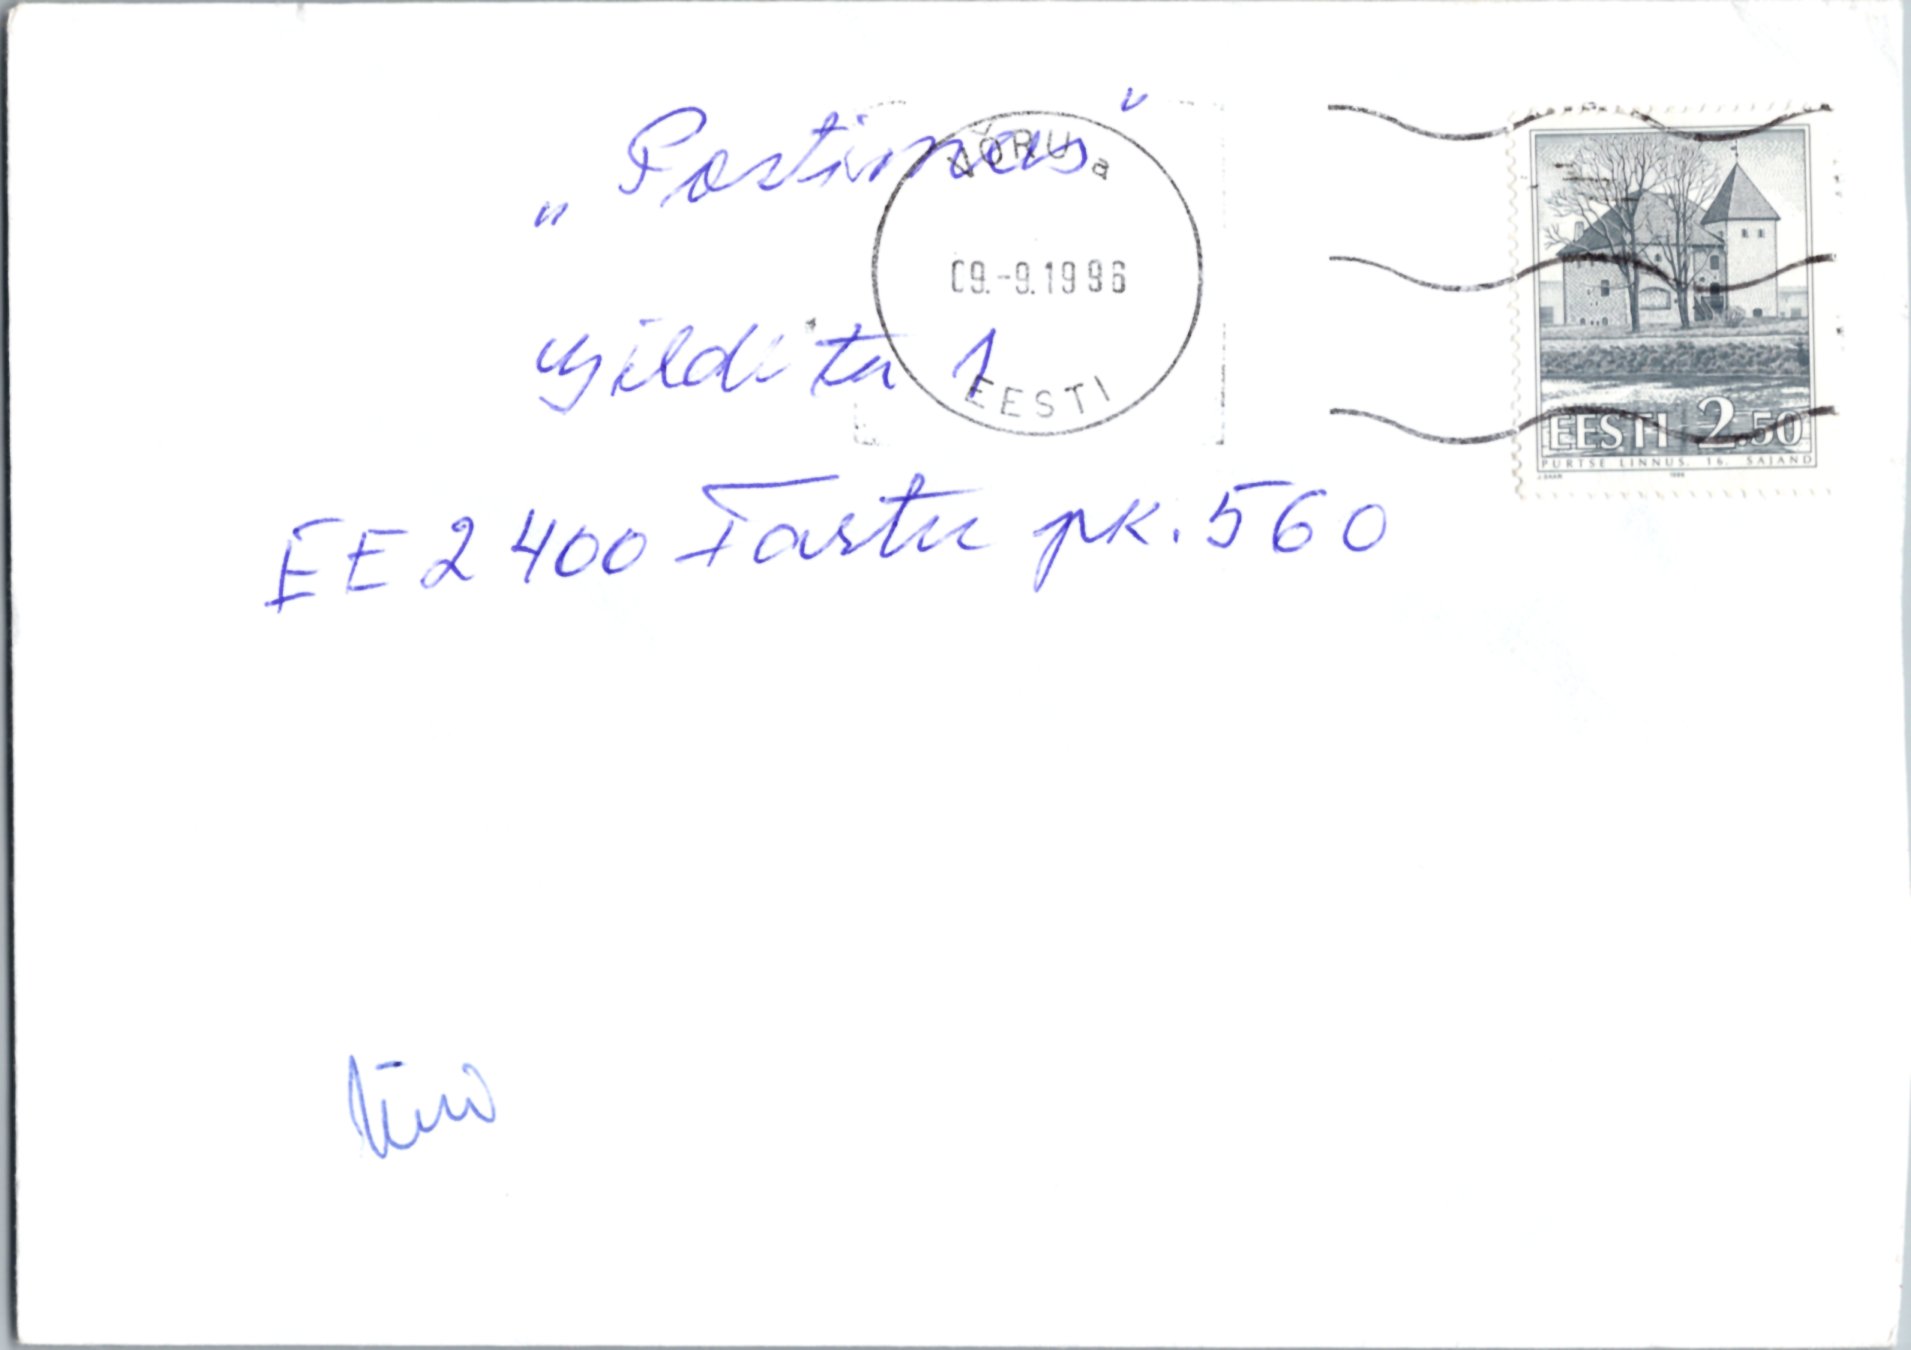 „Postimees”
Gildi tn 1
EE2400 Tartu pk. 560
VÕRU a
09.-9.1996
EESTI
EESTI 2.50
PURTSE LINNUS. 16. SAJAND
1996